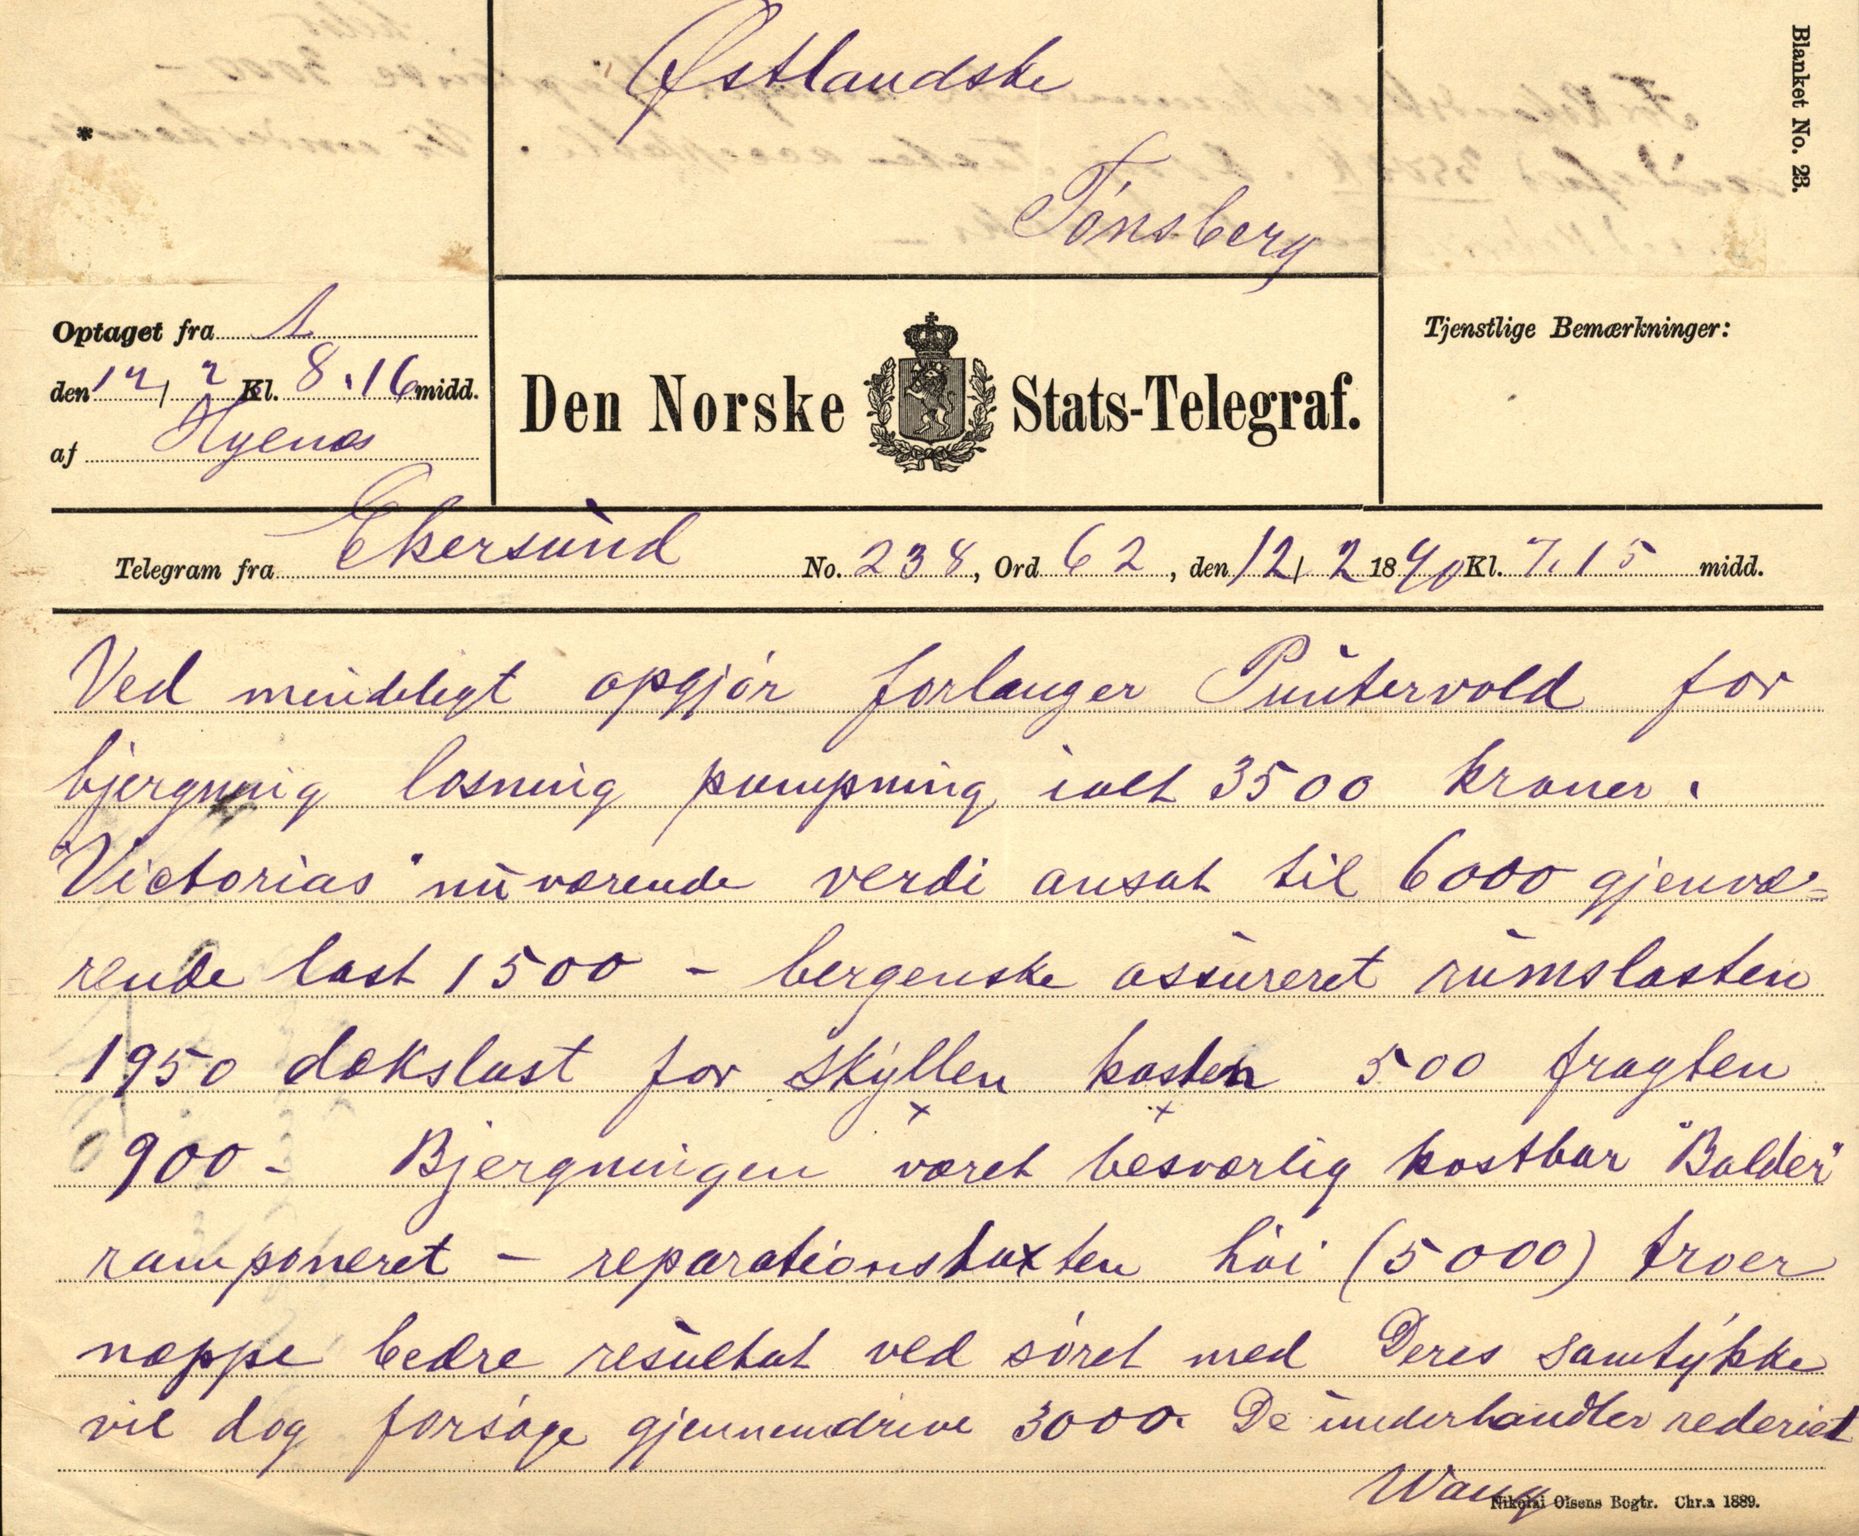 Blanket No. 23.
*
Østlandske
Tónsberg
Optaget fra A
den 12/2 Kl. 8.16 midd.
af
Den Norske Stats-Telegraf.
Tjenstlige Bemærkninger:
Telegram fra Ekersund No. 238, Ord 62, den 12/2 1890 Kl. 7.15 midd.
Ved mindeligt opgjór forlanger Puntervold for
bjergning losning pumpning ialt 3500 kroner.
"Victorias" nuværende verdi ansat til 6000 gjenvæ=
rende last 1500 - bergenske assureret rumslasten
1950 dækslast for Skyllen kosten 500 fragten
900 - Bjergningen været besværlig kostbar "Balder"
ramponeret - reparationstaxten hói (5000) troer
næppe bedre resultat ved sóret med Deres samtykke
vil dog forsóge gjennemdrive 3000. De underhandler rederiet
Wang
Nikolai Olsens Bogtr. Chr.a 1889.